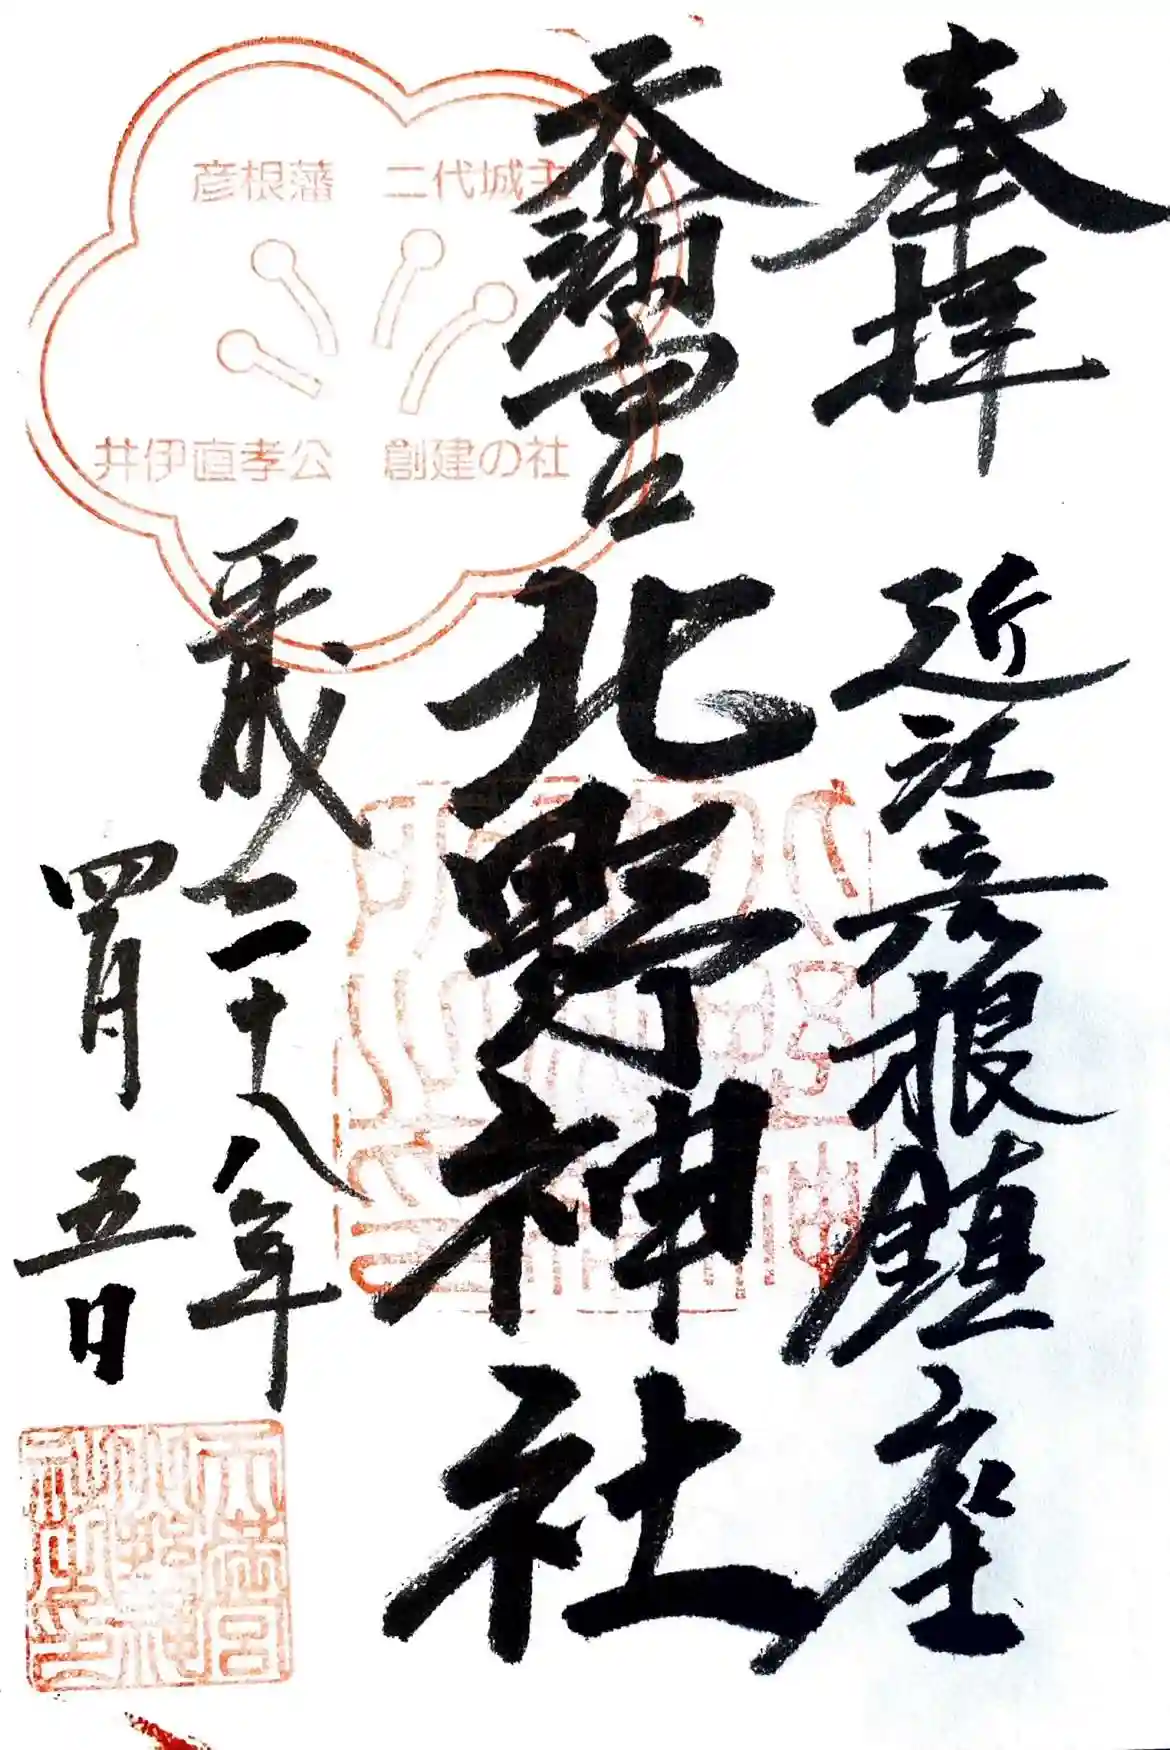 奉拝
近江彦根鎮座
天満宮
北野神社
平成二十八年
四月五日
彦根藩 二代城主
井伊直孝公 創建の社
天満宮
北野神
社之印